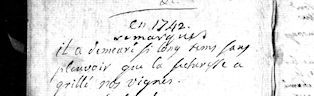 en 1742.
remarques
il a demeuré si long tems sans
pleuvoir que la secheresse a
grillé nos vignes.